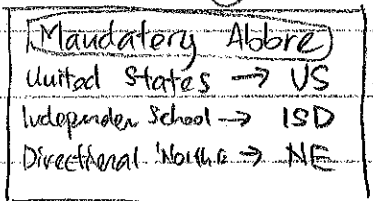 Mandatory Abbre
United States → US
Independen School → ISD
Directional → NE